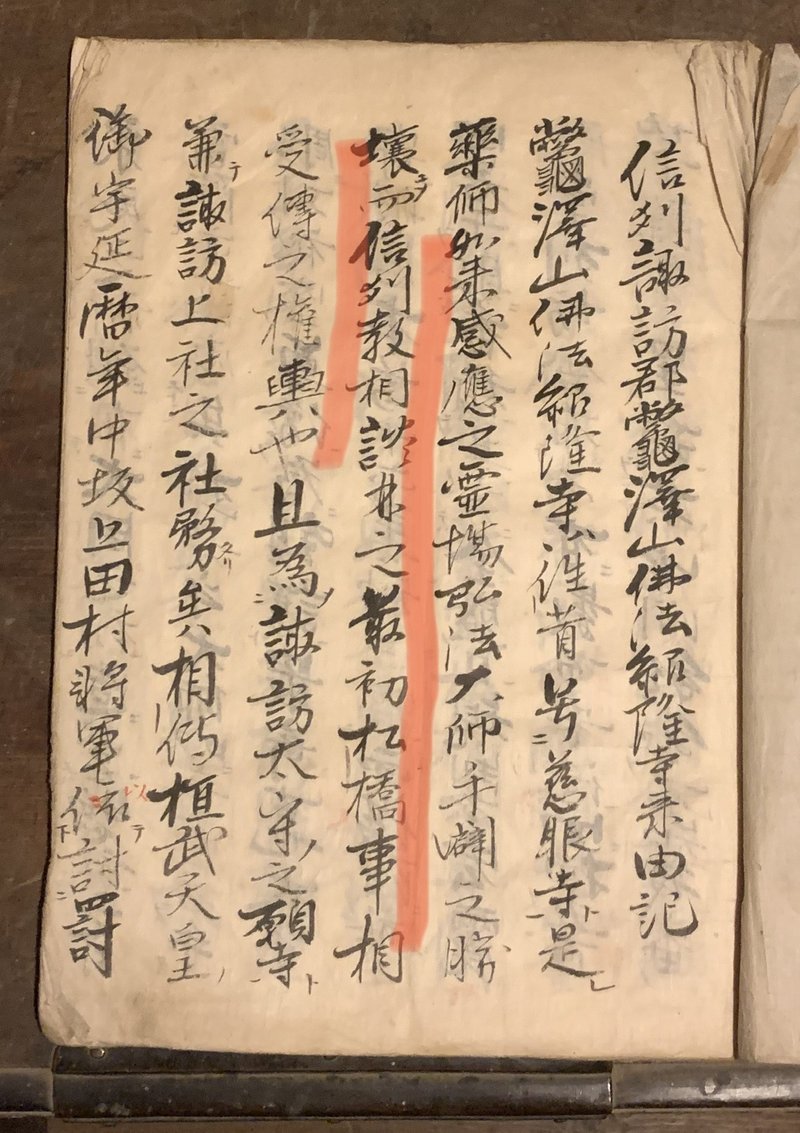 信刕諏訪郡鼈澤山佛法紹隆寺来由記
鼈澤山佛法紹隆寺ハ往昔号ニ慈眼寺ト是レ
藥師如来感應之霊場弘法大師手闢之勝
壤而信刕教相談林之最初松橋事相
受傳之権輿也且為ニ諏訪太守ノ之願寺ト
兼テ諏訪上社之社務矣相傳桓武天皇ノ
御宇延暦年中坂上田村将軍討罸